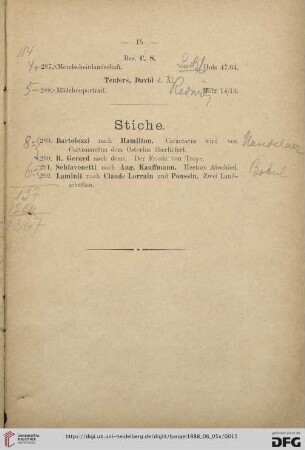 — 15 —
Bez. C. S.
287. Mondscheinlandschaft. Holz 47/64.
Teniers, David d. Ä.
5 — 288. Mädchenportrait. Holz 14/13.
Stiche.
289. Bartolozzi nach Hamilton. Caractacus wird von
Cartismandua dem Ostorius überliefert.
290. R. Gerard nach dems. Der Friede von Troye.
291. Schiavonetti nach Ang. Kauffmann. Hectors Abschied.
292. Laminit nach Claude Lorrain und Poussin. Zwei Land-
schaften.
https://digi.ub.uni-heidelberg.de/diglit/bangel1888_06_05x/0015
© Universitätsbibliothek Heidelberg
gefördert durch die
DFG